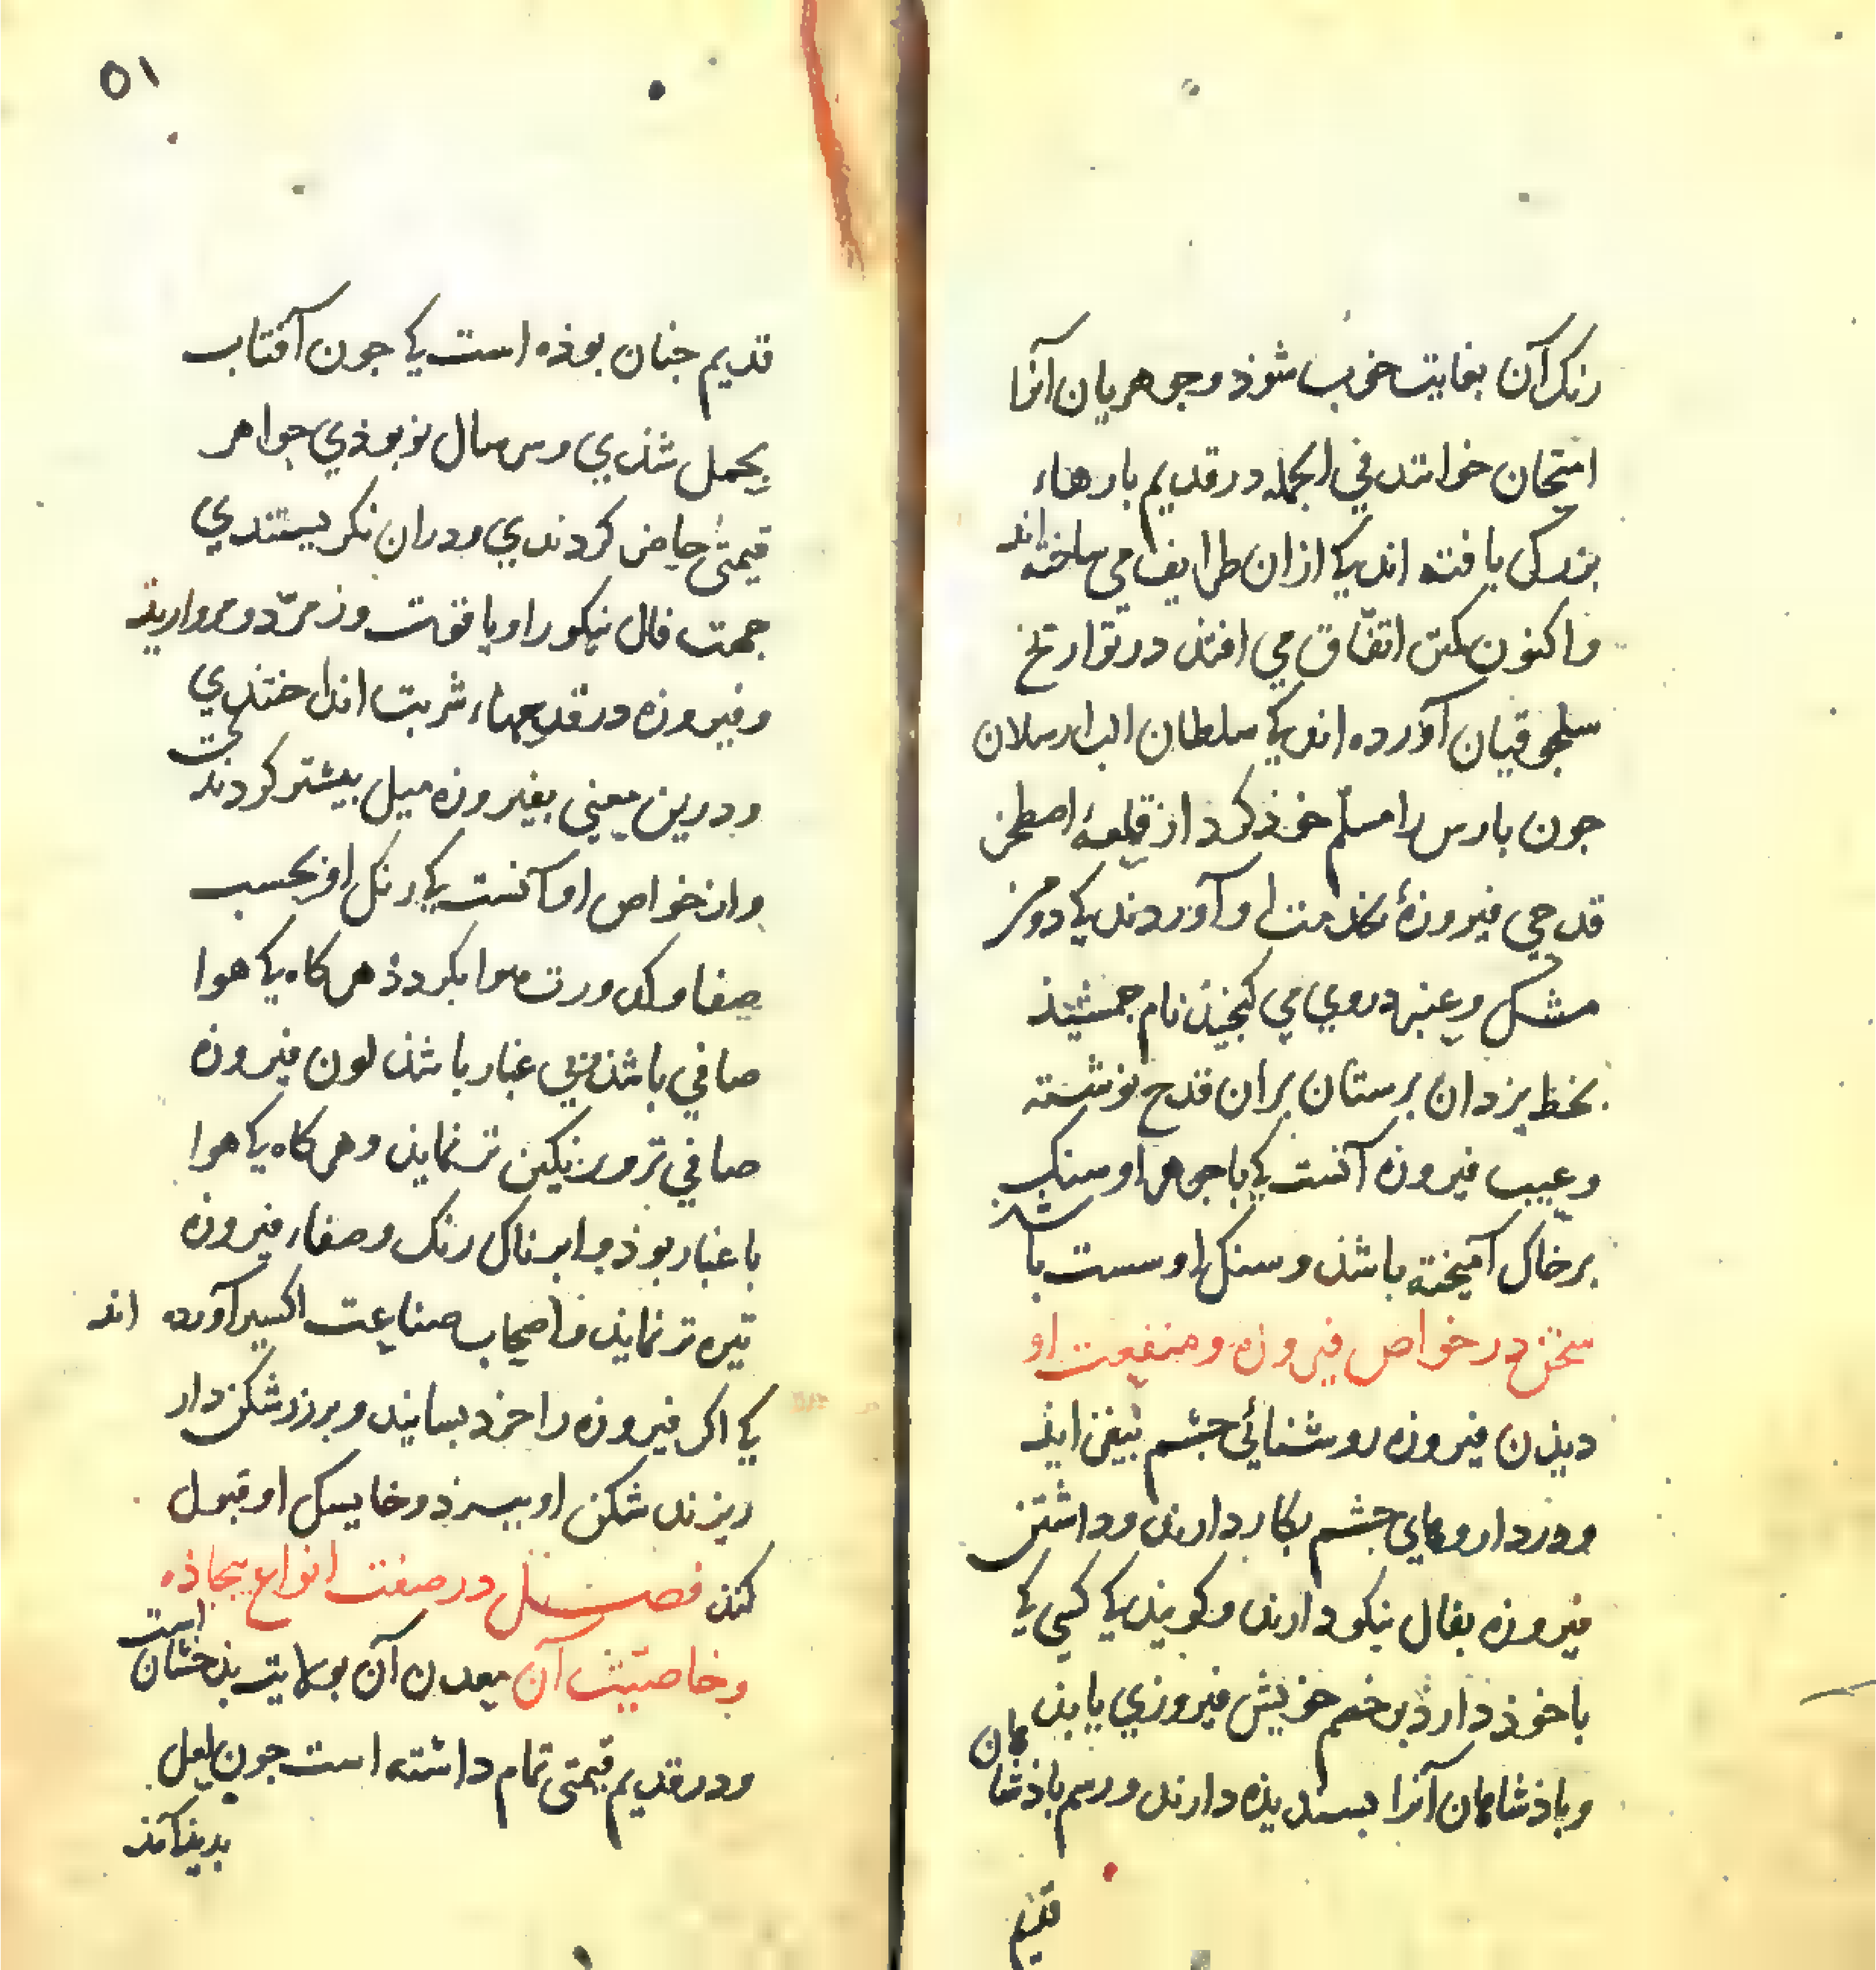 رنک آن بغایت خوب شوذ و جوهریان آنرا
امتحان خوانند في الجمله در قدیم بارهاء
بزرکی یافته اند کی ازان طرایف می ساخته اند
واکنون کمتر اتفّاق می افتذ در تواریخ
سلجوقیان آورده اند کی سلطان الب ارسلان
جون بارس را مسلّم خوذ کرد از قلعۀ اصطخر
قدحی فیروزۀ بخذمت او آوردند کی دو من
مشک و عنبر دروي می کنجیذ نام جمشیذ
بخط یزدان برستان بران قدح نوشته
و عیب فیروزه آنست کی با جوهر او سنک
بر خاک آمیخته باشذ و سنک او سست باشذ
سخن در خواص فیروزه و منفعت او
دیذن فیروزه روشنائي جشم بیفزایذ
ودر داروهاي جشم بکار دارند و داشتن
فیروزه بفال نیکو دارند و کویند کی کسی کی
با خوذ دارذ بر خصم خویش فیروزي یابذ
و باذشاهان آنرا بسندیذه دارند و رسم باذشاهان
قدیم
٥١
قدیم جنان بوذه است کی جون آفتاب
بحمل شذي و سر سال نو بوذي جواهر
قیمتی حاضر کردندي و دران نکریستندي
جهت فال نیکو را و یاقوت و زمرّد و مرواریذ
و فیروزه در قدحهاء شربت انداختندي
و درین معنی بفیروزه میل بیشتر کردندي
و از خواص او آنست کی رنک او بحسب
صفا و کدورت هوا بکردذ هر کاه کی هوا
صافي باشذ و بي غبار باشذ لون فیروزه
صافي تر و رنکین تر نمایذ و هر کاه کی هوا
با غبار بوذ و ابرناک رنک و صفاء فیروزه
تیره تر نمایذ و اصحاب صناعت اکسیر آورده اند
کی اکر فیروزه را خرد بسایند و بر زر شکن دار
ریزند شکن او ببرذ و خایسک او قبول
کنذ فصل در صفت انواع بیجاذه
و خاصیّت آن معدن آن بولایت بذخشان است
و در قدیم قیمتی تمام داشته است جون لعل
بدیذ آمذ